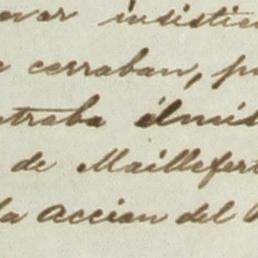 insistien
cerraban, p
traba
de Maillefert
la accion del